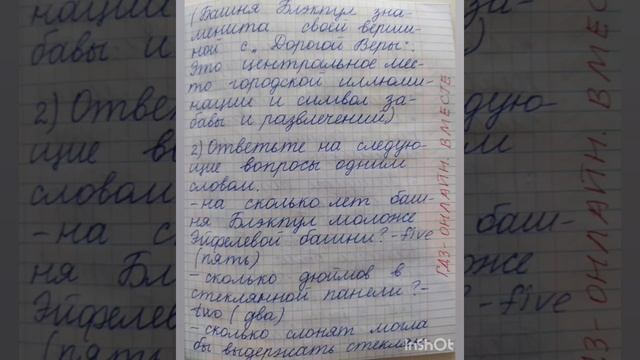 (Башня Блэкпул зна-
менита своей верши-
ной с „Дорогой Веры".
Это центральное мес-
то городской иллюми-
нации и символ за-
бавы и развлечений)
2) Ответьте на следую-
щие вопросы одним
словом.
-на сколько лет баш-
ня Блэкпул моложе
Эйфелевой башни? -five
(пять)
-сколько дюймов в
стеклянной панели?-
two (два)
-сколько слонят могла
бы выдержать
ГДЗ-ОНЛАЙН. ВМЕСТЕ
InShOt